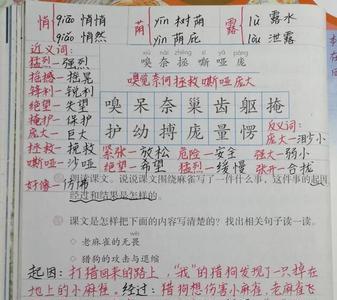 悄 qiāo 悄悄
qiǎo 悄然
荫 yīn 树荫
yìn 荫庇
露 lù 露水
lòu 泄露
近义词:
猛烈-强烈
摇撼-摇晃
锋利-锐利
绝望-失望
掩护-保护
庞大-巨大
拯救-挽救
嘶哑-沙哑
好像-仿佛
xiù nài zhěng sī yǎ páng
嗅奈拯嘶哑庞
嗅觉 奈何 拯救 嘶哑 庞大
嗅呆奈巢齿躯掩
护幼搏庞量愣
反义词:
庞大-
紧张-放松 危险-安全 强大-弱小
绝望-希望 猛烈-缓慢 张开-合拢
朗读课文。说说课文围绕麻雀写了一件什么事,这件事的起因、
经过和结果是怎样的。
课文是怎样把下面的内容写清楚的?找出相关句子读一读。
◇ 老麻雀的无畏
◇ 猎狗的攻击与退缩
起因:打猎回来的路上,“我”的猎狗发现了一只掉在
地上的小麻雀,经过:猎狗想伤害小麻雀,老麻雀飞